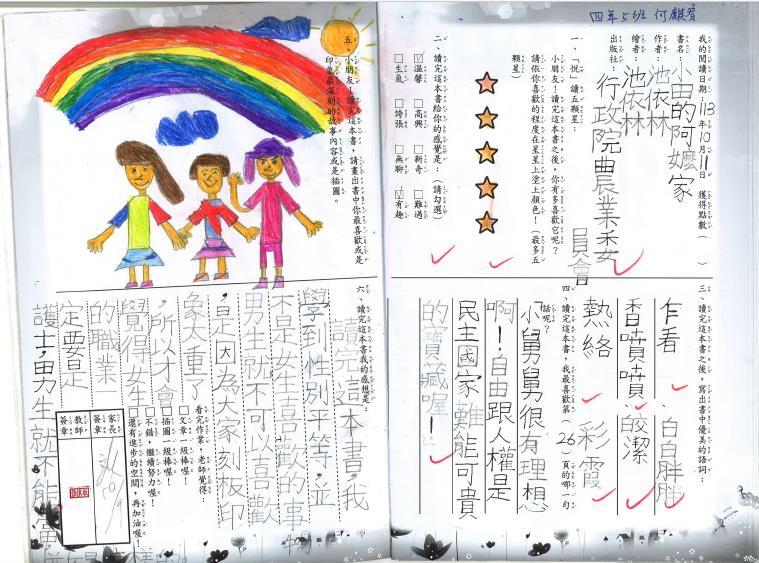 四年5班 何麒睿
我的閱讀日期113年10月11日 獲得點數( )
書名:小田的阿嬤家
作者:池依林
繪者:池依林
出版社:行政院農業委員會
一、「悅」讀五顆星:
小朋友!讀完這本書之後,你有多喜歡它呢?
請依你喜歡的程度在星星上塗上顏色!(最多五
顆星)
二、讀完這本書給你的感覺是: 請勾選)
☑溫馨 □高興 □新奇 □難過
□生氣 □誇張 □無聊 ☑有趣
三、讀完這本書之後,寫出書中優美的語詞:
乍看 白白胖胖
香噴噴 皎潔
熱絡 彩霞
四、讀完這本書,我最喜歡第(26)頁的哪一句
話呢?
「小舅舅很有理想
啊!自由跟人權是
民主國家難能可貴
的寶藏喔!」
五、小朋友!讀完這本書,請畫出書中你最喜歡或是
印象最深刻的故事內容或是插圖。
六、讀完這本書我的感想是:
讀完這本書,我
學到性別平等,並
不是女生喜歡的事物
男生就不可以喜歡
,是因為大家刻板印
象太重了
,所以才會
覺得女生
的職業一
定要是
護士,男生就不能當
看完作業,老師覺得:
□文章一級棒喔!
□插圖一級棒喔!
□不錯,繼續努力喔!
□還有進步的空間,再加油喔!
家長
簽章
教師
簽章